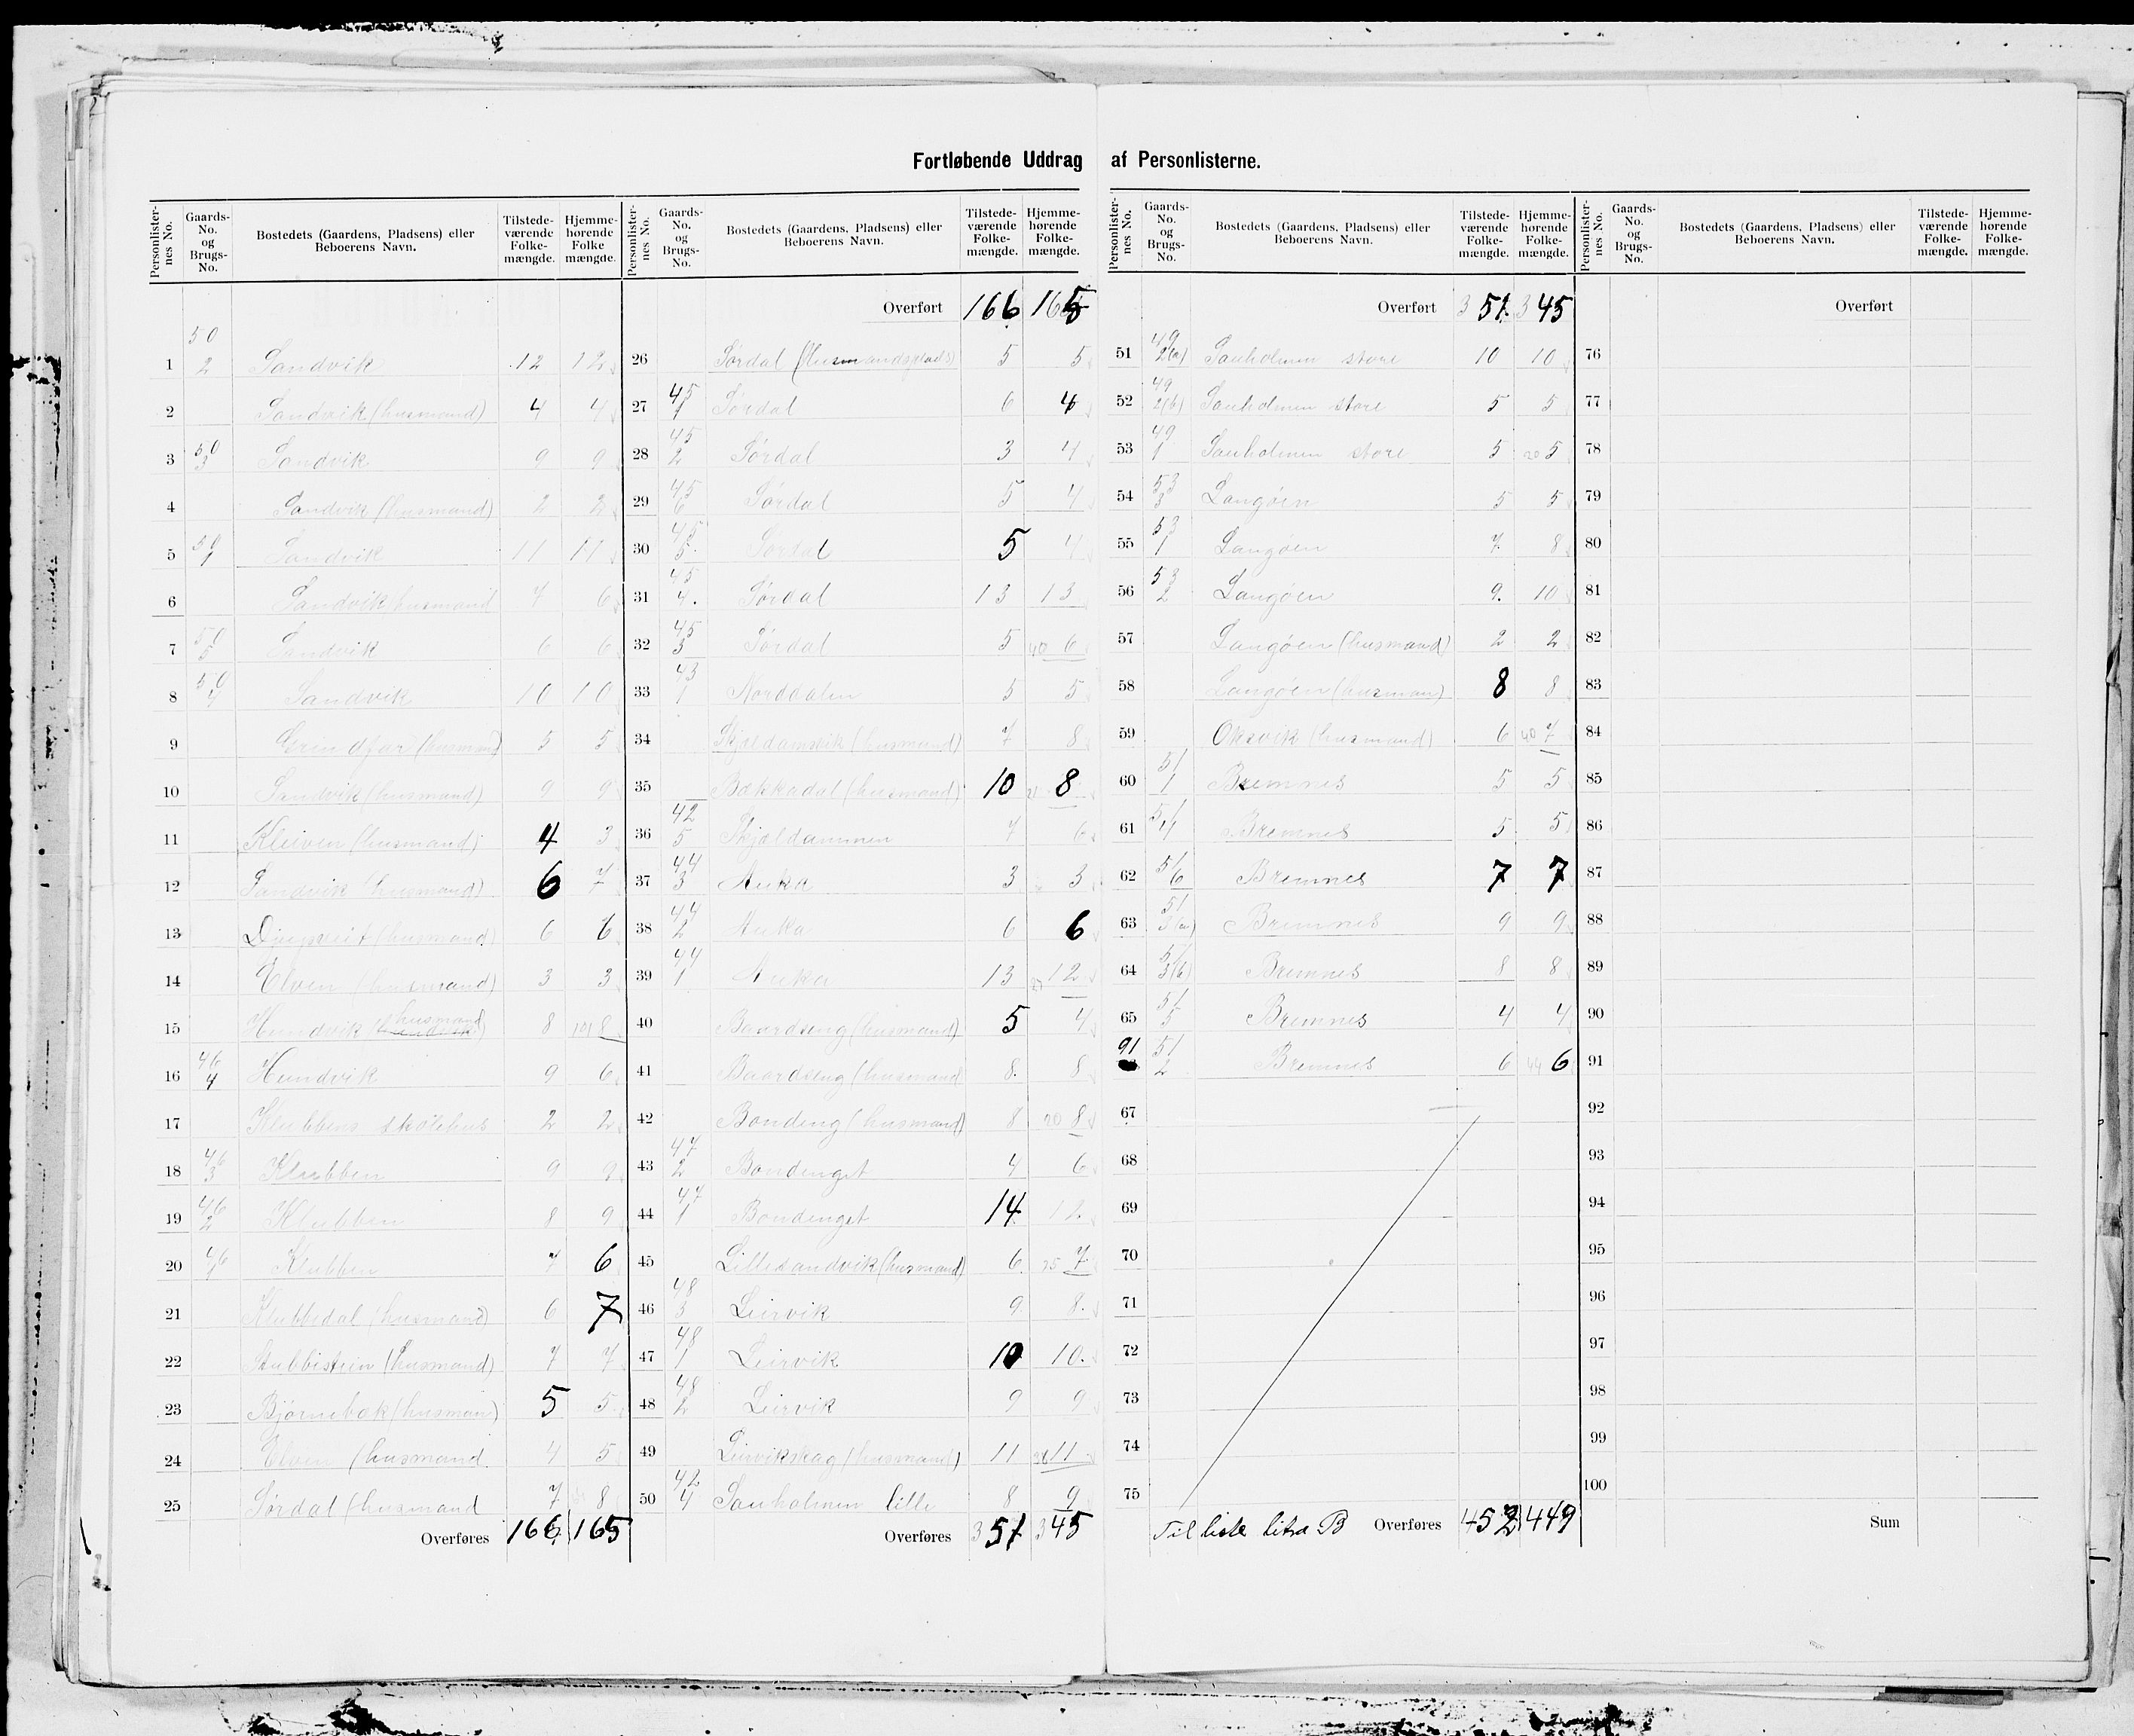 Fortløbende Uddrag af Personlisterne.
Personlisternes No. Gaards-No. og Brugs-No. Bostedets (Gaardens, Pladsens) eller Beboerens Navn. Tilstedeværende Folkemængde. Hjemmehørende Folkemængde.
1 50/2 Sandvik 12 12
2 Sandvik (husmand) 4 4
3 50/3 Sandvik 9 9
4 Sandvik (husmand) 2 2
5 50/1 Sandvik 11 11
6 Sandvik husmand 7 6
7 50/5 Sandvik 6 6
8 50/4 Sandvik 10 10
9 (husmand) 5 5
10 Sandvik (husmand) 9 9
11 Kleiven (husmand) 4 3
12 Sandvik (husmand) 6 7
13 (husmand) 6 6
14 Elven (husmand) 3 3
15 Hundvik (husmand) 8 101 8
16 46/4 Hundvik 9 6
17 Klubben skolehus 2 2
18 46/3 Klubben 9 9
19 46/2 Klubben 8 9
20 46/1 Klubben 7 6
21 Klubbedal (husmand) 6 7
22 Stubbistein (husmand) 7 7
23 Bjørnebæk (husman) 5 5
24 Elven (husmand 4 5
25 Sørdal (husmand 7 8
Overføres 166 165
Overført 166 165
26 Sørdal (husmandsplads) 5 5
27 45/1 Sørdal 6 4
28 45/2 Sørdal 3 4
29 45/6 Sørdal 5 4
30 45/5. Sørdal 5 4
31 45/4. Sørdal 13 13
32 45/3 Sørdal 5 40 6
33 43/1 Norddalen 5 5
34 Skjeldamvik (husmand) 7 8
35 Bækkadal (husmand) 10 21 8
36 42/5 Skjældammen 7 6
37 44/3 Auka 3 3
38 44/2 Auka 6 6
39 44/1 Auka 13 12
40 Baardseng (husmand) 5 4
41 Baardseng (husmand 8. 8
42 Bondeng (husmand) 8 20 8
43 47/2 Bondenget 4 6
44 47/1 Bondenget 14 12
45 Lillesandvik (husmand) 6 25 7
46 48/3 Leirvik 9 8.
47 48/1 Leirvik 10 10.
48 48/2 Leirvik 9 9
49 Leirvikskag (husmand) 11 38 11
50 42/4 Sauholmen lille 8 9
Overføres 351 345
Overført 351 345
51 49/2(a) Sauholmen store 10 10
52 49/2(b) Sauholmen store 5 5
53 49/1 Sauholmen store 5 20 5
54 53/3 Langøen 5 5
55 53/1 Langøen 7. 8
56 53/2 Langøen 9. 10
57 Langøen (husmand) 2 2
58 Langøen (husman) 8 8
59 Oksvik (husmand) 6 40 7
60 51/1 Bremnes 5 5
61 51/4 Bremnes 5 5
62 51/6 Bremnes 7 7
63 51/3(a) Bremnes 9 9
64 51/3(b) Bremnes 8 8
65 51/5 Bremnes 4 4
91 51/2 Bremnes 6 44 6
67
68
69
70
71
72
73
74
75
Til liste litra B Overføres 452 449
Overført
76
77
78
79
80
81
82
83
84
85
86
87
88
89
90
91
92
93
94
95
96
97
98
99
100
Sum